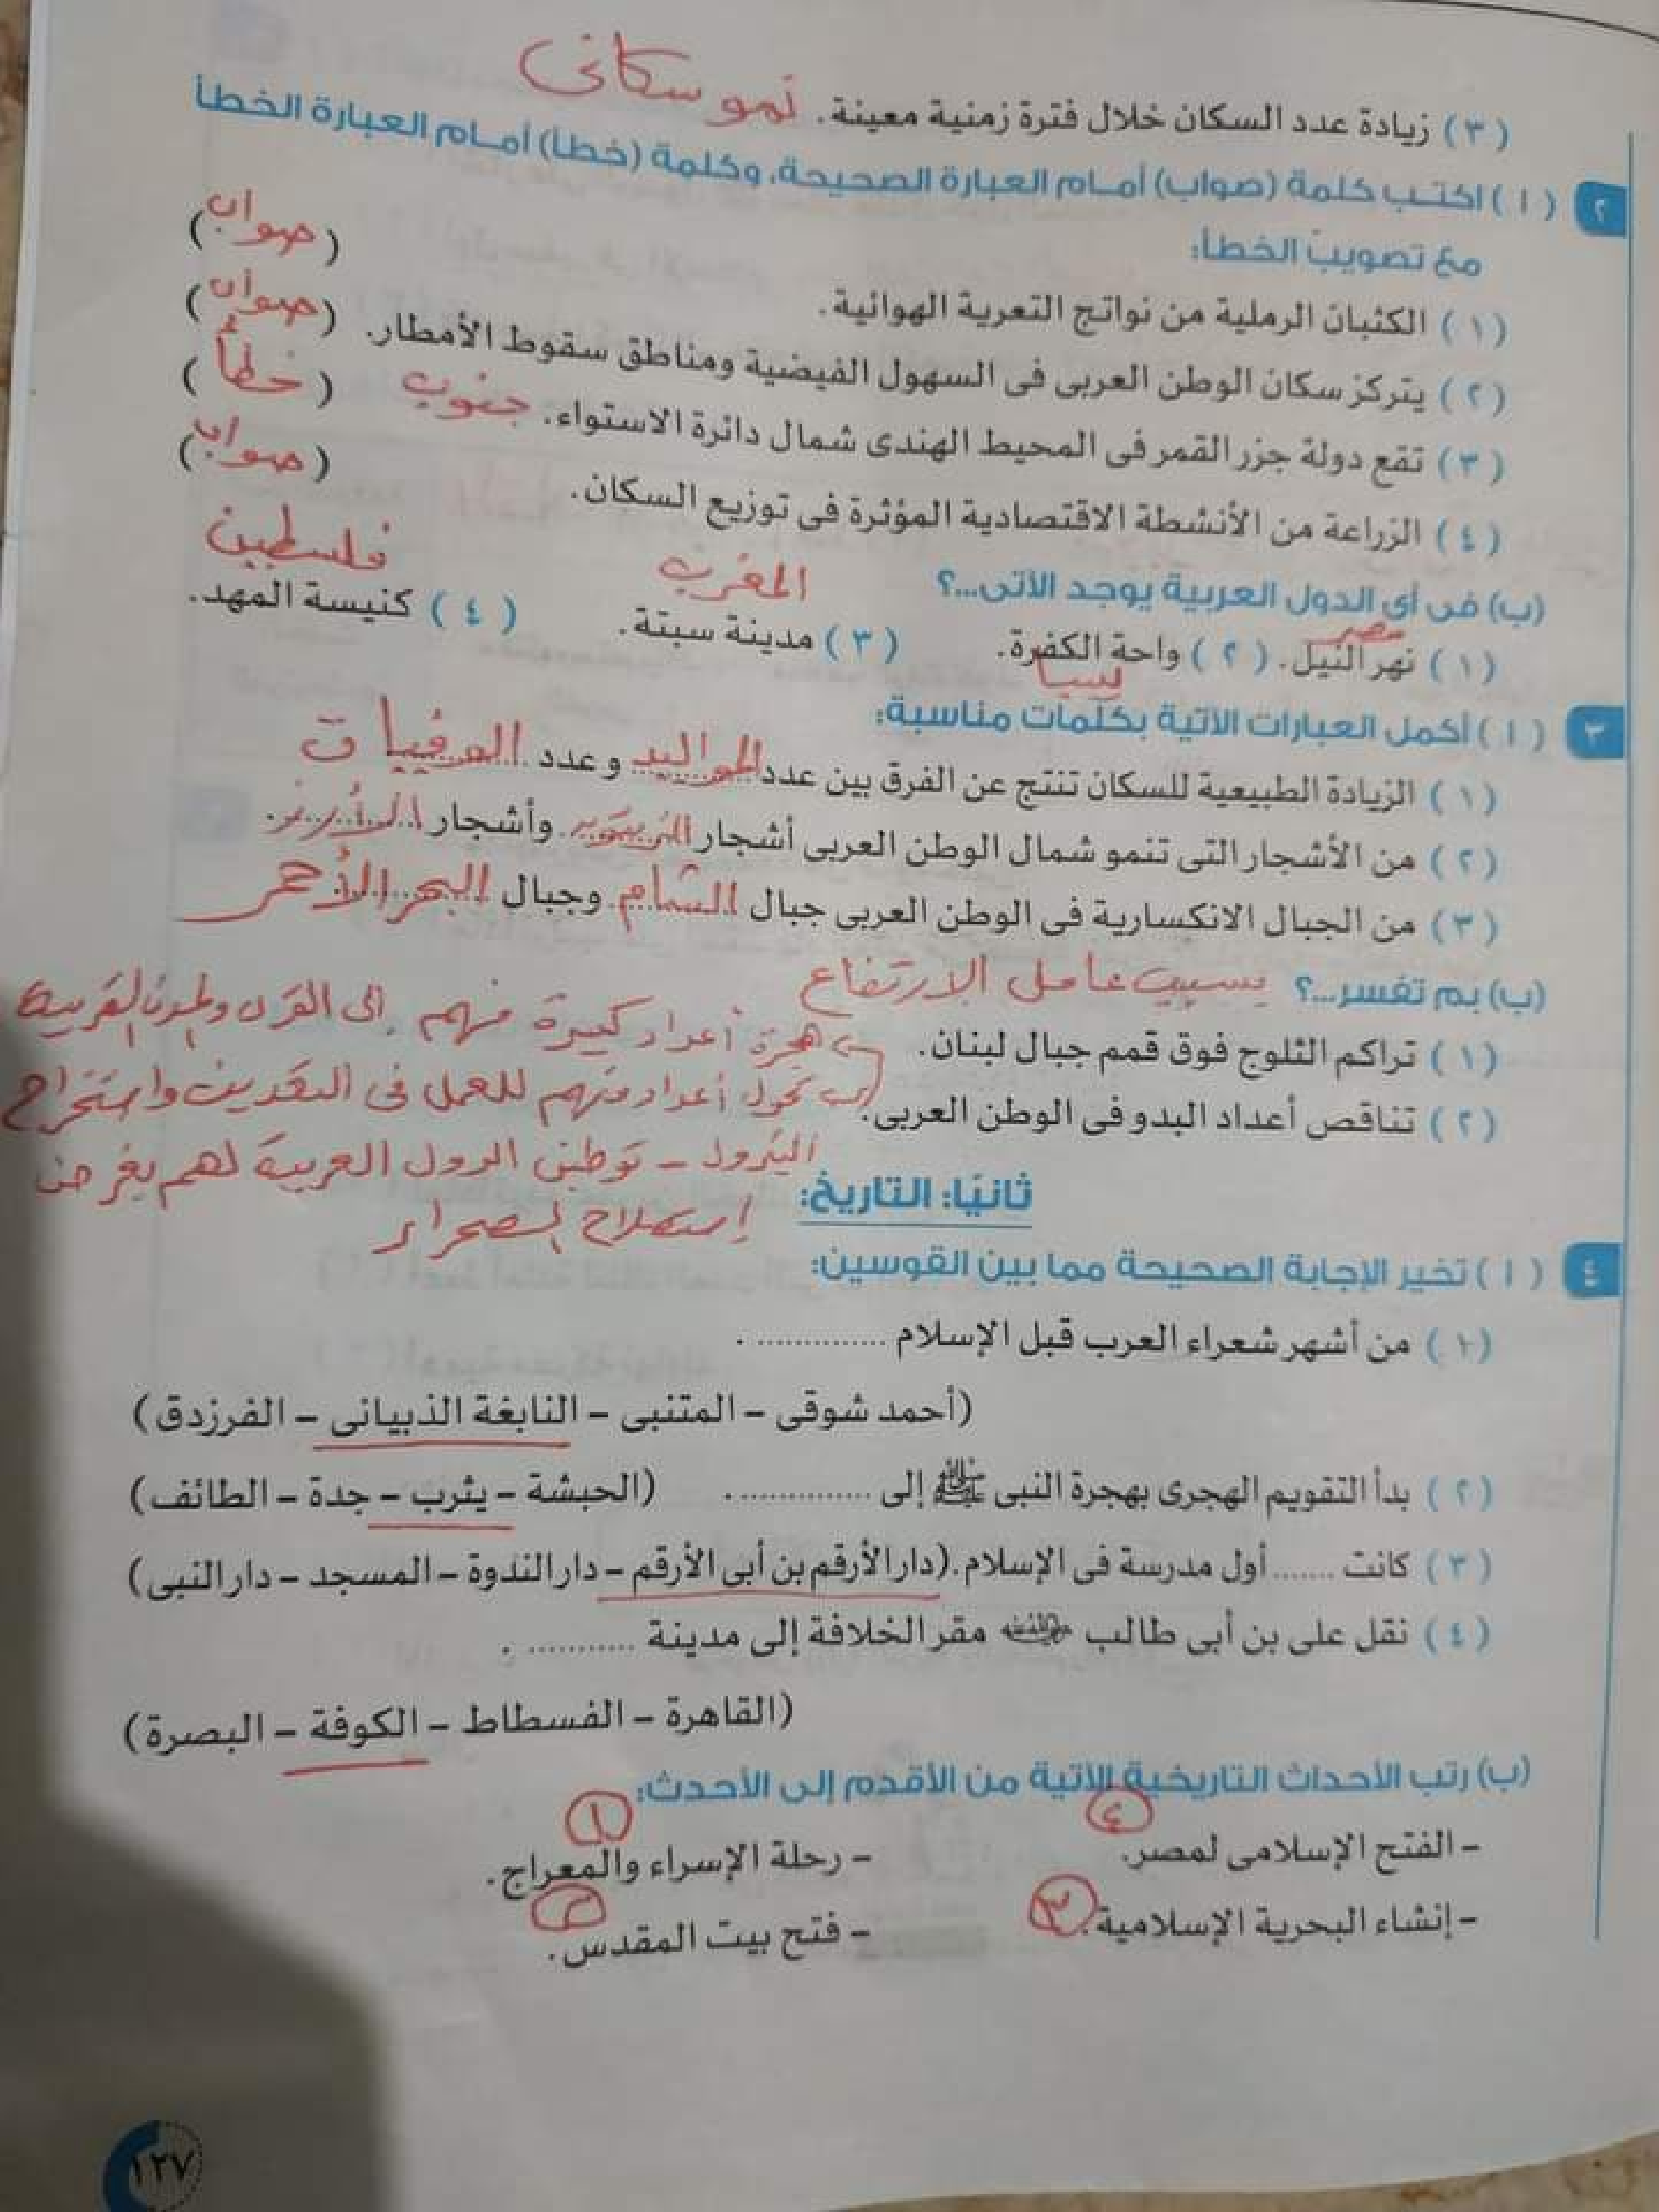 (٣) زيادة عدد السكان خلال فترة زمنية معينة. نمو سكانى
٢ (ا) اكتب كلمة (صواب) أمام العبارة الصحيحة، وكلمة (خطأ) أمام العبارة الخطأ
مع تصويب الخطأ:
(١) الكثبان الرملية من نواتج التعرية الهوائية. (صواب)
(٢) يتركز سكان الوطن العربى فى السهول الفيضية ومناطق سقوط الأمطار. (صواب)
(٣) تقع دولة جزر القمر فى المحيط الهندى شمال دائرة الاستواء. جنوب (خطأ)
(٤) الزراعة من الأنشطة الاقتصادية المؤثرة فى توزيع السكان. (صواب)
(ب) فى أى الدول العربية يوجد الآتى...؟
مصر المغرب فلسطين
(١) نهر النيل. (٢) واحة الكفرة. (٣) مدينة سبتة. (٤) كنيسة المهد.
ليبيا
٣ (ا) أكمل العبارات الآتية بكلمات مناسبة:
(١) الزيادة الطبيعية للسكان تنتج عن الفرق بين عدد المواليد وعدد الوفيات
(٢) من الأشجار التى تنمو شمال الوطن العربى أشجار وأشجار الأرز.
(٣) من الجبال الانكسارية فى الوطن العربى جبال الشام وجبال البحر الأحمر
(ب) بم تفسر...؟ بسبب عامل الارتفاع
(١) تراكم الثلوج فوق قمم جبال لبنان.
هجرة أعداد كبيرة منهم إلى القرى والمدن القريبة
(٢) تناقص أعداد البدو فى الوطن العربى.
تحول أعداد منهم للعمل فى التعدين واستخراج
البترول - توطين الدول العربية لهم بغرض
إستصلاح الصحراء
ثانيًا: التاريخ:
٤ (ا) تخير الإجابة الصحيحة مما بين القوسين:
(١) من أشهر شعراء العرب قبل الإسلام .............. .
(أحمد شوقى - المتنبى - النابغة الذبيانى - الفرزدق)
(٢) بدأ التقويم الهجرى بهجرة النبى ﷺ إلى .............. . (الحبشة - يثرب - جدة - الطائف)
(٣) كانت ....... أول مدرسة فى الإسلام. (دار الأرقم بن أبى الأرقم - دار الندوة - المسجد - دار النبى)
(٤) نقل على بن أبى طالب رضي الله عنه مقر الخلافة إلى مدينة ........... .
(القاهرة - الفسطاط - الكوفة - البصرة)
(ب) رتب الأحداث التاريخية الآتية من الأقدم إلى الأحدث:
٤ ١
- الفتح الإسلامى لمصر. - رحلة الإسراء والمعراج.
٣ ٢
- إنشاء البحرية الإسلامية. - فتح بيت المقدس.
١٢٧